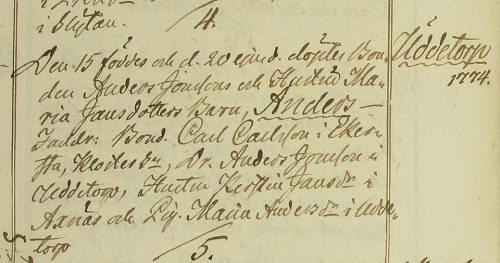 i Blÿtan.
4.
Den 15 föddes och d. 20 ejusd. döptes Bon-
den Anders Jonsons och Hustru Ma-
ria Jansdotters Barn, Anders —
Uddetorp
1774.
Faddr: Bond. Carl Carlsson i Eker-
sta, Klockes Dr. Anders Jonsson i
Uddetorp, Hustru Kerstin Jansdr i
Axnäs och Pig. Maria Andersdr i Udde-
torp
5.